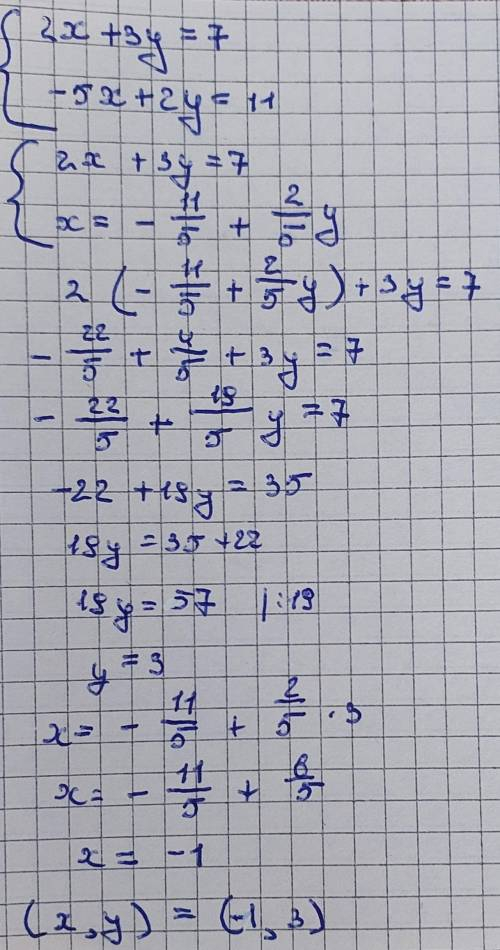 2x + 3y = 7
-5x + 2y = 11
2x + 3y = 7
x = - 11/5 + 2/5 y
2 (- 11/5 + 2/5 y) + 3y = 7
- 22/5 + 4/5 + 3y = 7
- 22/5 + 19/5 y = 7
-22 + 19y = 35
19y = 35 + 22
19y = 57 |:19
y = 3
x = - 11/5 + 2/5 · 3
x = - 11/5 + 6/5
x = -1
(x, y) = (-1, 3)